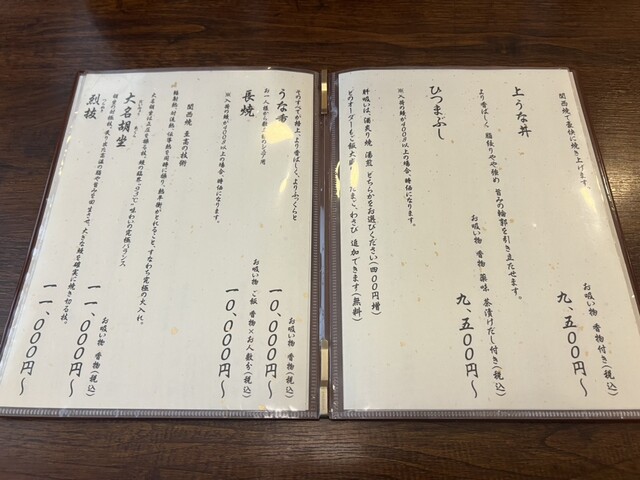 関西焼で豪快に焼き上げます。
上うな丼
お吸い物 香物付き(税込)
九、五〇〇円〜
より香ばしく 脂張りやや強め 旨みの輪郭を引き立たせます。
お吸い物 香物 薬味 茶漬けだし付き(税込)
ひつまぶし
九、五〇〇円〜
※入荷の鰻が400g以上の場合、時価になります。
肝吸いは、湯炙り焼 湯煎 どちらかをお選びください(四〇〇円増)
どのオーダーもご飯大盛 たまご、わさび 追加できます(無料)
そのすべてが極上、より香ばしく、よりふっくらと
うな香
お吸い物 香物(税込)
一〇、〇〇〇円〜
お一人様から
長焼
お吸い物 ご飯 香物×お人数分(税込)
一〇、〇〇〇円〜
※入荷の鰻が400g以上の場合、時価になります。
関西焼 至高の技術
輻射熱、対流熱、伝導熱を同時に操り、熱平衡がとれること、すなわち究極の火入れ。
大名胡坐
お吸い物 香物(税込)
一一、〇〇〇円〜
烈抜
一一、〇〇〇円〜